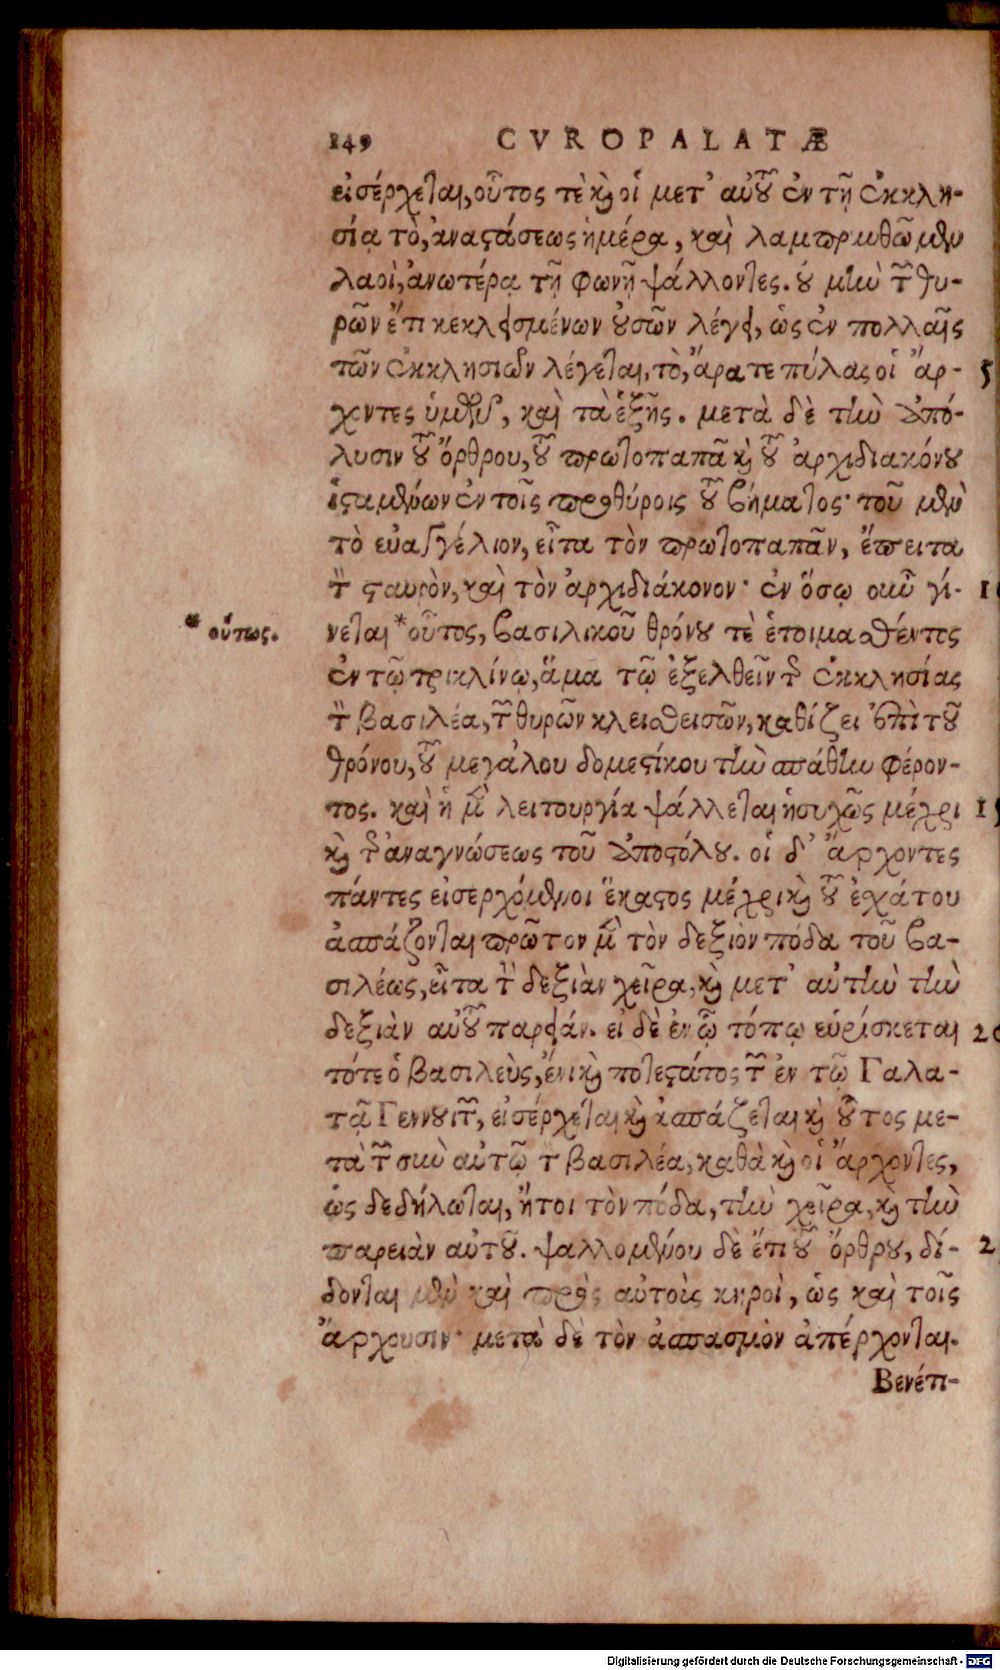 149 CVROPALATÆ
εἰσέρχεται, οὗτος τὲ καὶ οἱ μετ' αὐτοῦ ἐν τῇ ἐκκλη-
σίᾳ τὸ, ἀναστάσεως ἡμέρα, καὶ λαμπρυνθῶμεν
λαοὶ, ἀνωτέρᾳ τῇ φωνῇ ψάλλοντες. οὐ μὴν τῶν θυ-
ρῶν ἔτι κεκλεισμένων οὐσῶν λέγει, ὡς ἐν πολλαῖς
τῶν ἐκκλησιῶν λέγεται, τὸ, ἄρατε πύλας οἱ ἄρ- 5
χοντες ὑμῶν, καὶ τὰ ἑξῆς. μετὰ δὲ τὴν ἀπό-
λυσιν τοῦ ὄρθρου, τοῦ πρωτοπαπᾶ καὶ τοῦ ἀρχιδιακόνου
ἱσταμένων ἐν τοῖς προθύροις τοῦ βήματος· τοῦ μὲν
τὸ εὐαγγέλιον, εἶτα τὸν πρωτοπαπᾶν, ἔπειτα
τὸν σταυρὸν, καὶ τὸν ἀρχιδιάκονον· ἐν ὅσῳ οὖν γί- 1
* οὕτως. νεται * οὗτος, βασιλικοῦ θρόνου τὲ ἑτοιμασθέντος
ἐν τῷ τρικλίνῳ, ἅμα τῷ ἐξελθεῖν τῆς ἐκκλησίας
τὸν βασιλέα, τῶν θυρῶν κλεισθεισῶν, καθίζει ἐπὶ τοῦ
θρόνου, τοῦ μεγάλου δομεστίκου τὴν σπάθην φέρον-
τος. καὶ ἡ μὲν λειτουργία ψάλλεται ἡσυχῶς μέχρι 15
καὶ τῆς ἀναγνώσεως τοῦ ἀποστόλου. οἱ δ' ἄρχοντες
πάντες εἰσερχόμενοι ἕκαστος μέχρι καὶ τοῦ ἐσχάτου
ἀσπάζονται πρῶτον μὲν τὸν δεξιὸν πόδα τοῦ βα-
σιλέως, εἶτα τὴν δεξιὰν χεῖρα, καὶ μετ' αὐτὴν τὴν
δεξιὰν αὐτοῦ παρειάν. εἰ δὲ ἐν ᾧ τόπῳ εὑρίσκεται 20
τότε ὁ βασιλεὺς, ἔνι καὶ ποτεστάτος τῶν ἐν τῷ Γαλα-
τᾷ Γεννουιτῶν, εἰσέρχεται καὶ ἀσπάζεται καὶ οὗτος με-
τὰ τῶν σὺν αὐτῷ τὸν βασιλέα, καθὰ καὶ οἱ ἄρχοντες,
ὡς δεδήλωται, ἤτοι τὸν πόδα, τὴν χεῖρα, καὶ τὴν
παρειὰν αὐτοῦ. ψαλλομένου δὲ ἔτι τοῦ ὄρθρου, δί- 2
δονται μὲν καὶ πρὸς αὐτοὺς κηροὶ, ὡς καὶ τοῖς
ἄρχουσιν· μετὰ δὲ τὸν ἀσπασμὸν ἀπέρχονται.
Βενέτι-
Digitalisierung gefördert durch die Deutsche Forschungsgemeinschaft - DFG